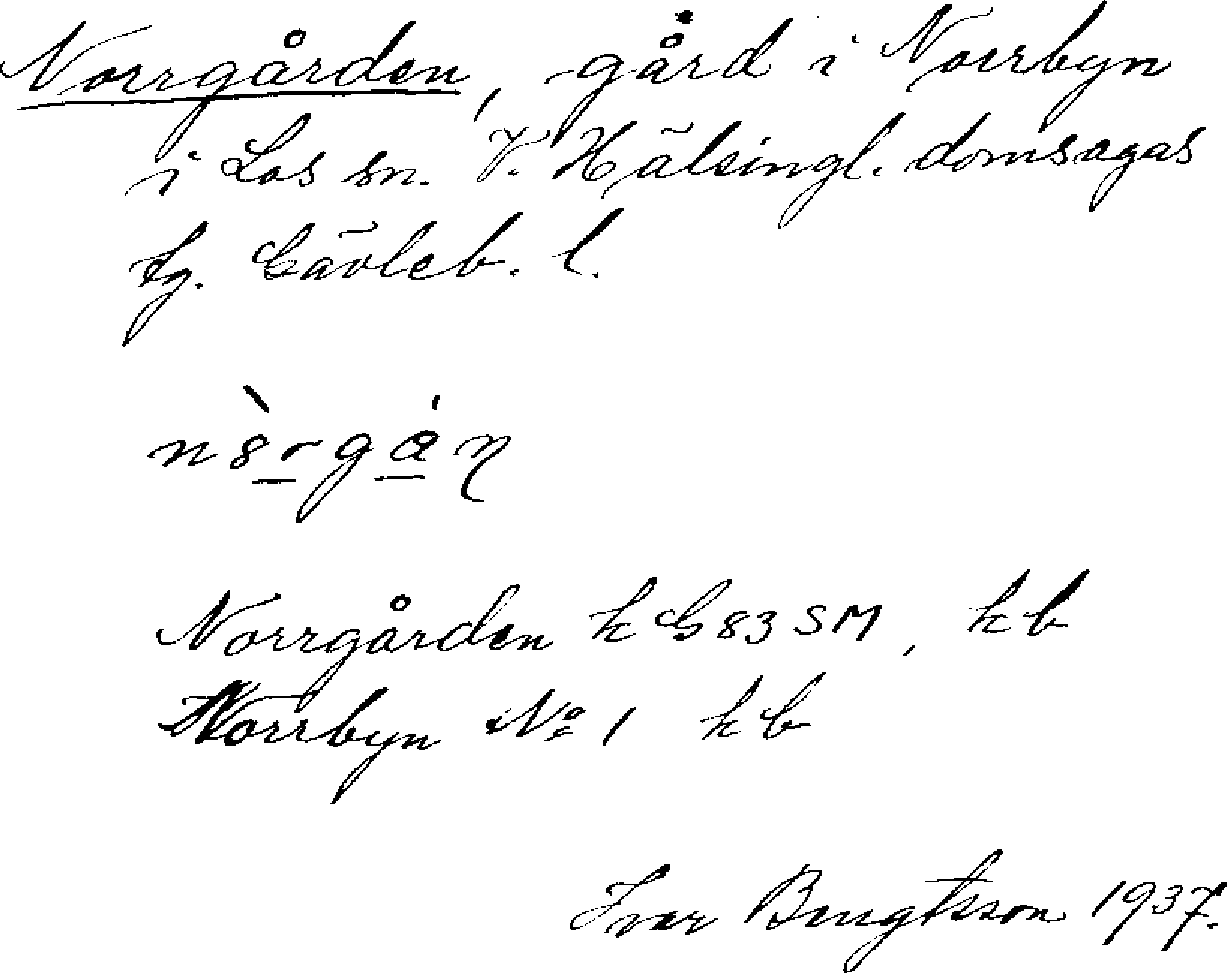 Norrgården, gård i Norrbyn
i Los sn. V. Hälsingl. domsagas
tg. Gävleb. l.
Norrgården k G83SM, kb
Norrbyn No 1 kb
Ivar Bengtsson 1937.